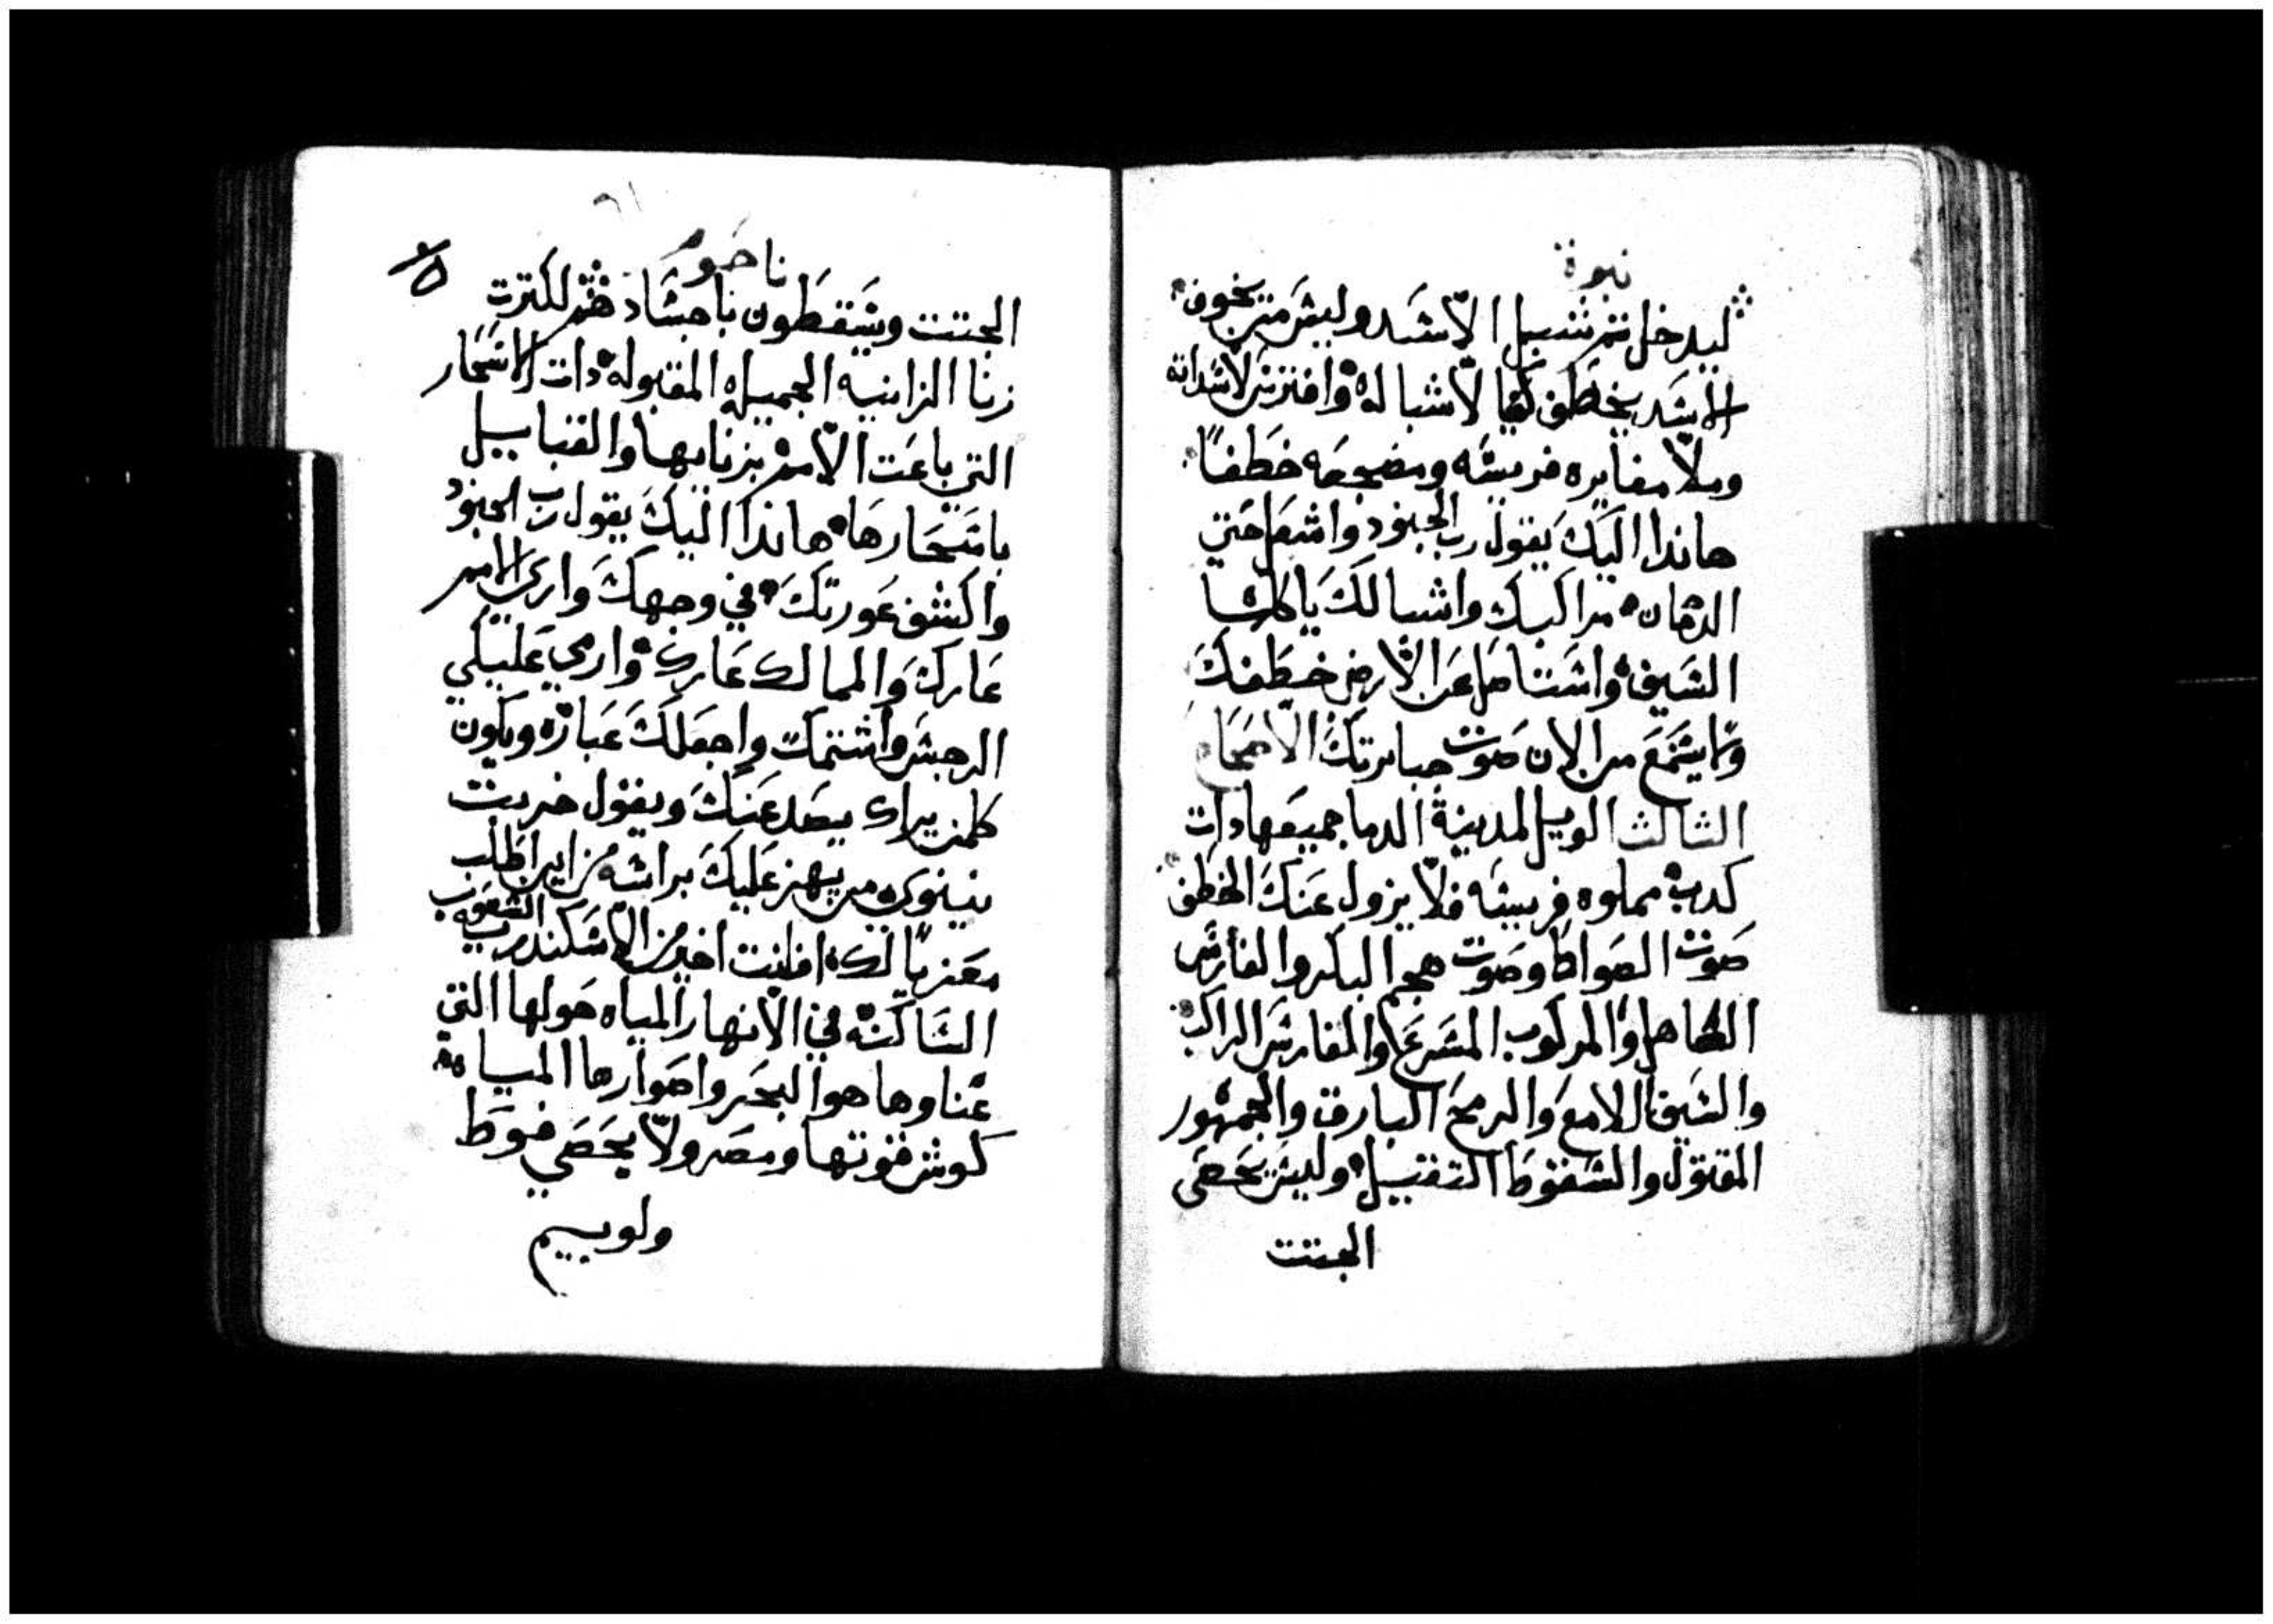 نبوة
ليدخل تم شبل الاسد وليس من يخوف
الاسد يخطف كفا لاشباله وافترس لاسداته
وملا مغايره فريسه ومضجعه خطفا
هاندا اليك يقول رب الجنود واشعل حتي
الدخان مراكبك واشبالك ياكلها
السيف واستاصل عن الارض خطفك
ولا يسمع من الان صوت جبابرتك الاصحاح
الثالث الويل لمدينة الدما جميعها دات
كدب مملوه فريسه فلا يزول عنك الخطف
صوت الصواط وصوت هجم البكر والفارس
الطاهل والمركوب المسرع والفارس الراكب
والسيف الامع والرمح البارق والجمهور
المقتول والسقوط التقيل وليس يحصي
الجتت
ناحوم
٧٥
الجتت ويسقطون باجساد هم لكترت
زنا الزانيه الجميله المقبوله دات الاسحار
التي باعت الامم بزناها والقبايل
باسحارها هاندا اليك يقول رب الجنود
واكشف عورتك في وجهك واري الامم
عارك والممالك عارك وارمي عليكي
الرجس واشتمك واجعلك عباره ويكون
كلمن يراك يصد عنك ويقول خربت
نينوي من يهز عليك براسه من اين اطلب
معزيا لك افانت اخير من الاسكندريه الشعوب
الساكنه في الانهار المياه حولها التي
غناوها هو البحر واصوارها المياه
كوش قوتها ومصر ولا يحصي فوط
ولوبييم